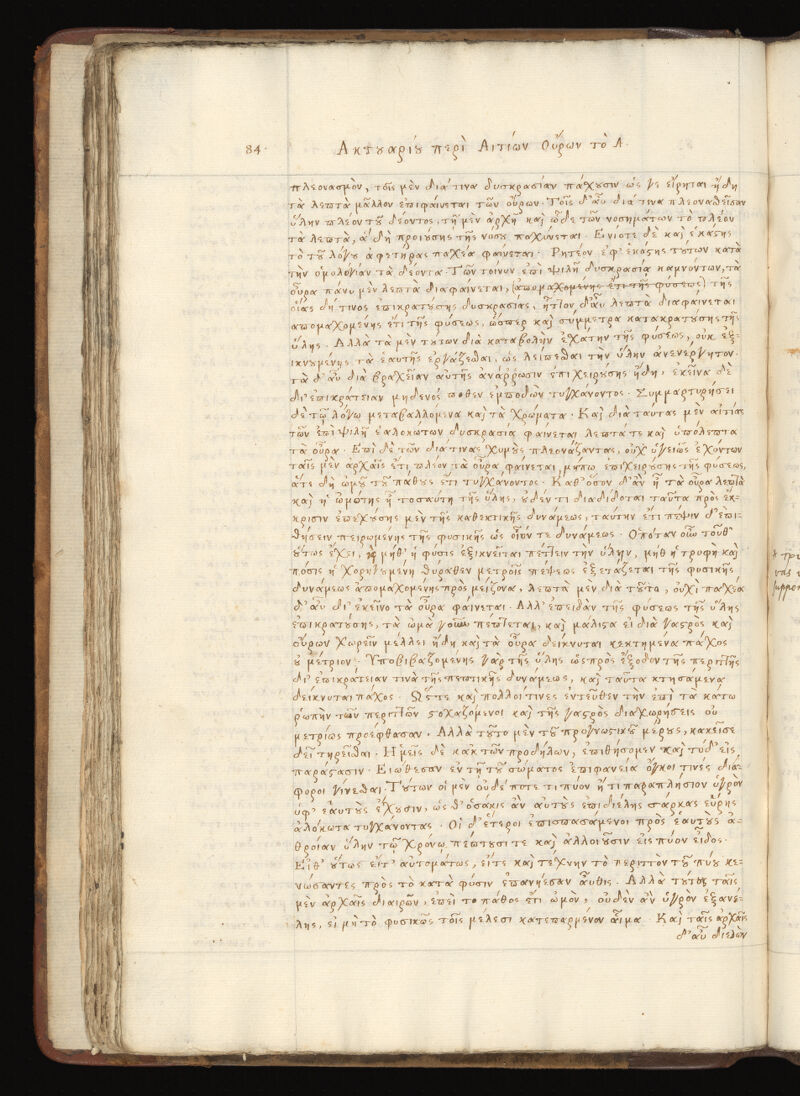 84. Ακτουαρίου περὶ Αιτίων Οὔρων τὸ Λ.
πλεονασμὸν, τοῖς μὲν διά τινα δυσκρασίαν πάσχουσιν ὡς γε εἴρηται ἤδη
τὰ λεπτὰ μᾶλλον ἐπιφαίνεται τῶν οὔρων. Τοῖς δ' αὖ διά τινα πλεονασθεῖσαν
ὕλην πλέον τοῦ δέοντος, τῇ μὲν ἀρχῇ καὶ ὧδε τῶν νοσημάτων τὸ πλέον
τὰ λεπτὰ, ἃ δὴ προιούσης τῆς νόσου παχύνεται. Ενίοτε δὲ καὶ ἑκάστης
τὸ τοῦ λόγου ἀφετήρας παχέα φαίνεται. Ρητέον ἐφ' ἑκάστης τούτων κατὰ
τὴν ὁμολογίαν τὰ δέοντα. Τῶν τοίνυν ἐπὶ ψιλῇ δυσκρασίᾳ καμνόντων, τὰ
οὖρα πάνυ μὲν λεπτὰ διαφαίνεται, (ἀπομαχομένης ἔτι τῆς φύσεως) τῆς
οἵας δή τινος ἐπικρατούσης δυσκρασίας, ἧττον δ' αὖ λεπτὰ διαφαίνεται
ἀπομαχομένης ἔτι τῆς φύσεως, ὥσπερ καὶ σύμμετρα κατακρατούσης τῆς
ὕλης. Αλλὰ τὰ μὲν τούτων διὰ καταβολὴν ἐσχάτην τῆς φύσεως, οὐκ ἐξι-
κνουμένης τὰ ἑαυτῆς ἐργάζεσθαι, ὡς λείπεσθαι τὴν ὕλην ἀνενέργητον.
τὰ δ' αὖ διὰ βραχεῖαν αὐτῆς ἀνάρρωσιν ἐπιχειρούσης ἤδη, ἐκεῖνα δὲ
δι' ἐπικράτειαν μηδενός ποθεν ἐμποδὼν τυγχάνοντος. Συμμαρτυρήσει
δὲ τῷ λόγῳ μεταβαλλόμενα καὶ τὰ χρώματα. Καὶ διὰ ταύτας μὲν αἰτίας
τῶν ἐπὶ ψιλῇ ἑαλωκότων δυσκρασίᾳ φαίνεται λεπτά τε καὶ ὑπόλεπτα
τὰ οὖρα. Επὶ δὲ τῶν διά τινας χυμοὺς πλεονάζοντας, οὐχ ὑγειῶς ἔχόντων
ταῖς μὲν ἀρχαῖς ἔτι πλέον τὰ οὖρα φαίνεται, μήπω ἐπιχειρούσης τῆς φύσεως,
ἅτε δὴ ὠμοῦ τοῦ πάθους ἔτι τυγχάνοντος. Καθ' ὅσον δ' ἂν ᾖ τὰ οὖρα λεπτὰ
καὶ ἡ ὠμότης ᾖ τοσαύτη τῆς ὕλης, οὐδέν τι διαδίδοται ταῦτα πρὸς ἔκ-
κρισιν ἐπεχούσης μὲν τῆς καθεκτικῆς δυνάμεως, ταύτην ἔτι πέψιν δ' ἐπι-
θήσειν πειρωμένης τῆς φυσικῆς ὡς οἷόν τε δυνάμεως. Οπόταν οὖν τοῦθ'
οὕτως ἔχει, μήθ' ἡ φύσις ἐξικνεῖται πέττειν τὴν ὕλην, μήθ' ἡ τροφὴ καὶ
πόσις ἡ χορηγουμένη θύραθεν μετρίοις πέψεως ἐξετάζεται τῆς φυσικῆς
δυνάμεως ἀπομαχομένης πρὸς μείζονα, λεπτὰ μὲν διὰ τοῦτο, οὐχὶ παχέα
δ' αὖ δι' ἐκεῖνο τὰ οὖρα φαίνεται. Αλλ' ἐπειδὰν τῆς φύσεως τῆς ὕλης
ἐπικρατούσης, τὰ ὠμὰ γοῦν πέττεται, καὶ μάλιστα εἰ διὰ γαστρὸς καὶ
οὔρων χωρεῖν μέλλει ἤδη καὶ τὰ οὖρα δείκνυται κεκτημένα πάχος
οὐ μέτριον. Υποβιβαζομένης γὰρ τῆς ὕλης ὡς πρὸς ἔξοδον τῆς περιττῆς
δι' ἐπικράτειαν τινὰ τῆς πεπτικῆς δυνάμεως, καὶ ταῦτα κτησάμενα
δείκνυται πάχος. Ωστε καὶ πολλοί τινες ἐντεῦθεν τὴν ἐπὶ τὰ κάτω
ῥωπὴν τῶν περιττῶν στοχαζόμενοι καὶ τῆς γαστρὸς διαχωρήσεις οὐ
μετρίως προέφθασαν. Αλλὰ τοῦτο μὲν τοῦ προγνωστικοῦ μέρους, κἀκεῖσε
δεῖ τηρεῖσθαι. Ημεῖς δὲ κἀκ τῶν προδήλων, ἐπιθήσομεν καὶ τόδ' εἰς
παράστασιν. Ειώθεσαν ἐν τῇ τοῦ σώματος ἐπιφανείᾳ ὄγκοι τινές διά-
φοροι γίνεσθαι. Τούτων οἱ μὲν οὐδέποτέ τι πύον ἤ τι παραπλήσιον ὑγρὸν
ὑφ' ἑαυτοὺς ἔχουσιν, ὡς δ' ὁσάκις ἂν αὐτοὺς ἐπιδιέλης σάρκας εὕρης
ἀλόκωτα τυγχάνοντας. Οἱ δ' ἕτεροι ἐπισπασάμενοι πρὸς ἑαυτοὺς ἀ-
θροίαν ὕλην τῷ χρόνῳ πέπτουσί τε καὶ ἀλλοιοῦσιν εἰς πύον εἶδος.
Εἶθ' οὕτως εἴτ' αὐτομάτως, εἴτε καὶ τέχνην τὸ περιττὸν τοῦ πύου κε-
νώσαντες πρὸς τὸ κατὰ φύσιν ἐπανήεσαν αὖθις. Αλλὰ τούτοις ταῖς
μὲν ἀρχαῖς διαιρῶν, ἐπεὶ τὸ πάθος ἔτι ὠμὸν, οὐδὲν ἂν ὑγρὸν ἐξανέ-
λης, εἰ μὴ τὸ φυσικῶς τοῖς μέλεσι κατεσπαρμένον αἷμα. Καὶ ταῖς ἀρχαῖς
δ' αὖ διελὼν